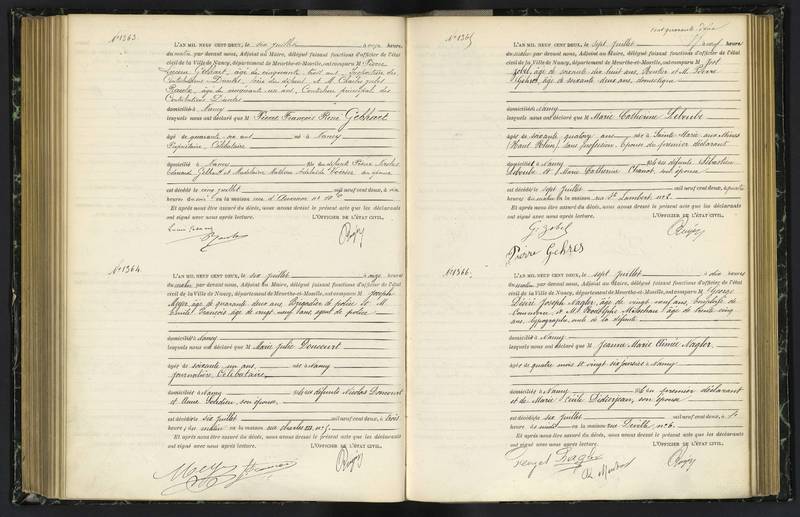 N° 1363.
L'AN MIL NEUF CENT DEUX, le six juillet à onze heures
du matin par devant nous, Adjoint au Maire, délégué faisant fonctions d'officier de l'état
civil de la Ville de Nancy, département de Meurthe-et-Moselle, ont comparu M Pierre
Lucien Gebhart, âgé de cinquante trois ans,
Contributions Directes, du défunt, et M. Charles Jules
âgé de cinquante un ans, Contrôleur principal des
Contributions Directes
domiciliés à Nancy
lesquels nous ont déclaré que M Pierre François René Gebhart
âgé de quarante un ans né à Nancy
Propriétaire, Célibataire
domicilié à Nancy fils de défunts Pierre Nicolas
Edouard Gebhart et Madeleine
est décédé le cinq juillet mil neuf cent deux, à six
heures du soir en la maison rue d'Auxonne n°
Et après nous être assuré du décès, nous avons dressé le présent acte que les déclarants
ont signé avec nous après lecture. L'OFFICIER DE L'ÉTAT CIVIL,
N° 1364.
L'AN MIL NEUF CENT DEUX, le six juillet à onze heures
du matin par devant nous, Adjoint au Maire, délégué faisant fonctions d'officier de l'état
civil de la Ville de Nancy, département de Meurthe-et-Moselle, ont comparu M Joseph
Meyer, âgé de quarante deux ans, Brigadier de police et M.
Emile François âgé de vingt neuf ans, agent de police
domiciliés à Nancy
lesquels nous ont déclaré que M Marie Julie Doncourt
âgée de soixante un ans née à Nancy
Journalière, Célibataire
domiciliée à Nancy fille de défunts Nicolas Doncourt
et Anne son épouse
est décédée le six juillet mil neuf cent deux, à trois
heures du matin en la maison rue Charles III, n° 5
Et après nous être assuré du décès, nous avons dressé le présent acte que les déclarants
ont signé avec nous après lecture. L'OFFICIER DE L'ÉTAT CIVIL,
Meyer François
cent quarante
N° 1365
L'AN MIL NEUF CENT DEUX, le sept juillet à neuf heures
du matin par devant nous, Adjoint au Maire, délégué faisant fonctions d'officier de l'état
civil de la Ville de Nancy, département de Meurthe-et-Moselle, ont comparu M
Zobel, âgé de soixante dix huit ans, Rentier et M. Pierre
Gehres, âgé de soixante deux ans, domestique
domiciliés à Nancy
lesquels nous ont déclaré que M Marie Catherine
âgée de soixante quatorze ans née à Sainte Marie aux Mines
(Haut Rhin), sans profession, épouse du premier déclarant
domiciliée à Nancy fille de défunts Sébastien
et Marie Catherine son épouse
est décédée le sept juillet mil neuf cent deux, à quatre
heures du matin en la maison rue St Lambert n° 2
Et après nous être assuré du décès, nous avons dressé le présent acte que les déclarants
ont signé avec nous après lecture. L'OFFICIER DE L'ÉTAT CIVIL,
G. Zobel
Pierre GEHRES
N° 1366.
L'AN MIL NEUF CENT DEUX, le sept juillet à dix heures
du matin par devant nous, Adjoint au Maire, délégué faisant fonctions d'officier de l'état
civil de la Ville de Nancy, département de Meurthe-et-Moselle, ont comparu M
Désiré Joseph Nagler, âgé de vingt neuf ans, Employé de
Commerce, et M. Rodolphe âgé de trente cinq
ans, typographe, de la défunte
domiciliés à Nancy
lesquels nous ont déclaré que M Jeanne Marie Aimée Nagler
âgée de quatre mois et vingt six jours née à Nancy
domiciliée à Nancy fille du premier déclarant
et de Marie Cécile Didierjean, son épouse
est décédée le six juillet mil neuf cent deux, à
heures de en la maison rue n° 6.
Et après nous être assuré du décès, nous avons dressé le présent acte que les déclarants
ont signé avec nous après lecture. L'OFFICIER DE L'ÉTAT CIVIL,